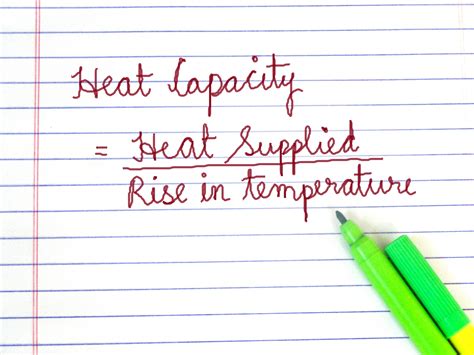 Heat Capacity
= Heat Supplied
Rise in temperature